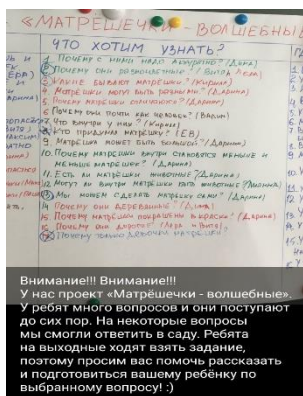 «МАТРЁШЕЧКИ ВОЛШЕБНЫ
ЧТО ХОТИМ УЗНАТЬ?
1. Почему с ними надо аккуратно? (Дима)
2. Почему они разноцветные? (Витя,
3. Какие бывают матрёшки?
4. Матрёшки могут быть разными? (Дарина)
5. Почему матрёшки отличаются? (Дарина)
6. Почему они почти как человек? (Вадим)
7. Что внутри у них? (Кирилл)
8. Кто придумал матрёшку? (ЕВ)
9. Матрёшка может быть большой? (Дарина)
10. Почему матрёшки внутри становятся меньше и
меньше матрёшек? (Дарина)
11. Есть ли матрёшки животные? (Дарина)
12. Могут ли внутри матрёшки быть животные?
13. Мы можем сделать матрёшку сами? (Дарина)
14. Почему они деревянные? (Дима)
15. Почему матрёшки покрашены в краски? (Дарина)
16. Почему они дорогие? (Лера и Витя)
17. Почему только девочки матрёшки?
Внимание!!! Внимание!!!
У нас проект «Матрёшечки - волшебные».
У ребят много вопросов и они поступают
до сих пор. На некоторые вопросы
мы смогли ответить в саду. Ребята
на выходные ходят взять задание,
поэтому просим вас помочь рассказать
и подготовиться вашему ребёнку по
выбранному вопросу! :)